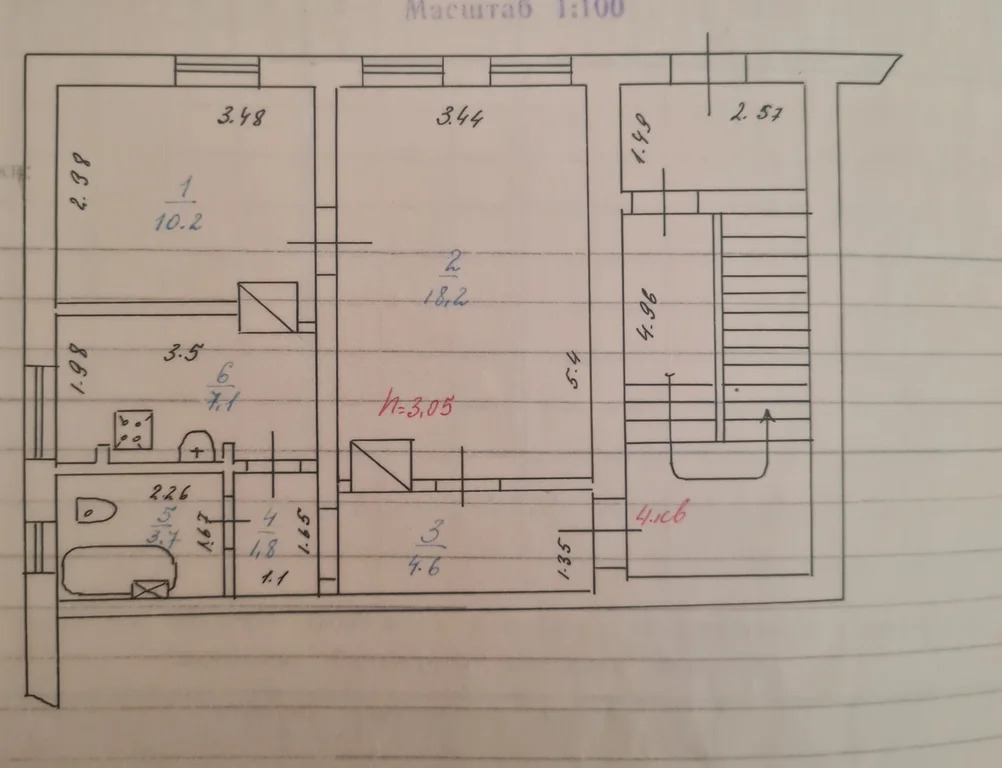 Масштаб 1:100
3.48
3.44
2.57
1.49
2.38
1
10.2
2
18,2
4.96
3.5
1.98
6
7,1
5.4
h=3,05
2.26
5
3.7
1.67
4
1,8
1.65
1.1
3
4.6
1.35
4.кв